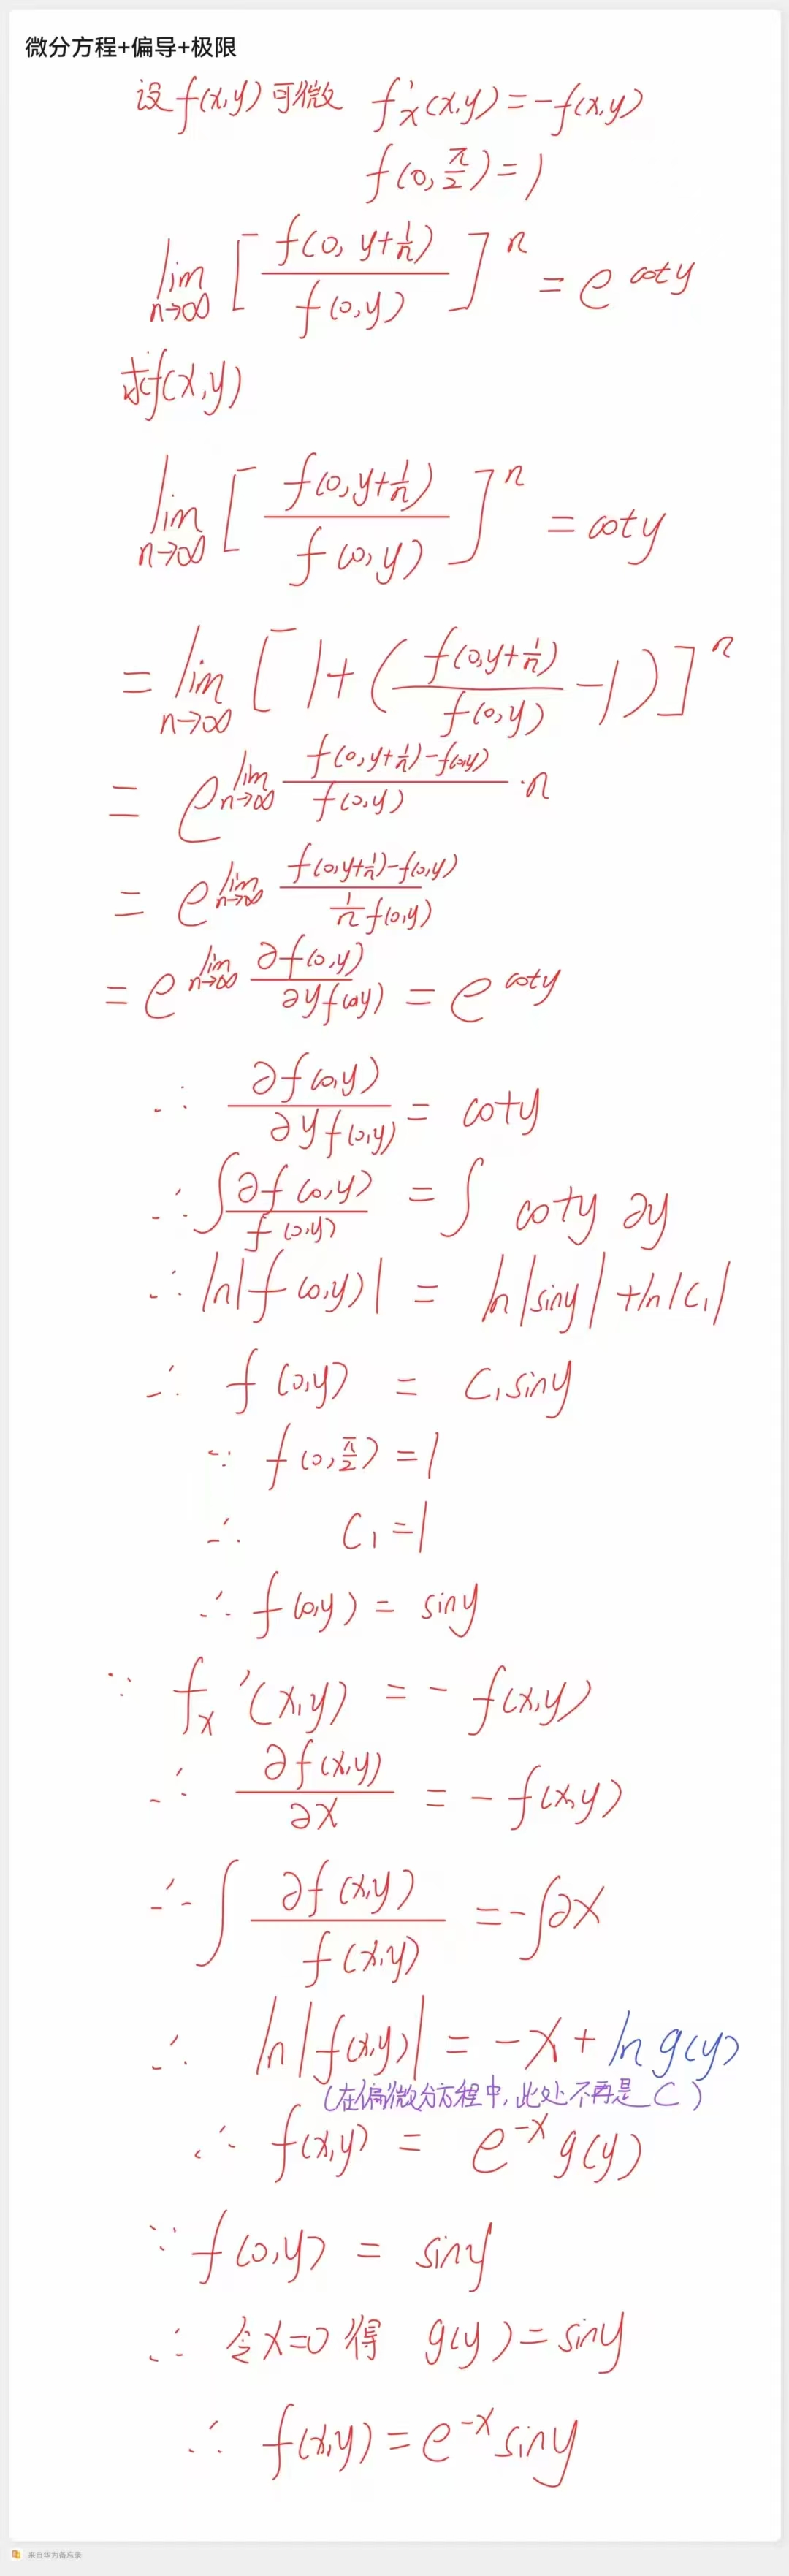 微分方程+偏导+极限
设 f(x,y) 可微 f'x(x,y) = -f(x,y)
f(0, π/2) = 1
lim n→∞ [ f(0, y+1/n) / f(0,y) ]^n = e^coty
求f(x,y)
lim n→∞ [ f(0,y+1/n) / f(0,y) ]^n = coty
= lim n→∞ [ 1+( f(0,y+1/n) / f(0,y) -1) ]^n
= e^lim n→∞ f(0,y+1/n)-f(0,y) / f(0,y) ·n
= e^lim n→∞ f(0,y+1/n)-f(0,y) / 1/n f(0,y)
= e^lim n→∞ ∂f(0,y) / ∂y f(0,y) = e^coty
∴ ∂f(0,y) / ∂y f(0,y) = coty
∴ ∫ ∂f(0,y) / f(0,y) = ∫ coty ∂y
∴ ln|f(0,y)| = ln|siny| + ln|C₁|
∴ f(0,y) = C₁siny
∵ f(0, π/2) = 1
∴ C₁ = 1
∴ f(0,y) = siny
∵ fx'(x,y) = - f(x,y)
∴ ∂f(x,y) / ∂x = - f(x,y)
∴ ∫ ∂f(x,y) / f(x,y) = -∫∂x
∴ ln|f(x,y)| = -x + ln g(y)
(在偏微分方程中,此处不再是C)
∴ f(x,y) = e^-x g(y)
∵ f(0,y) = siny
∴ 令x=0 得 g(y) = siny
∴ f(x,y) = e^-x siny
来自华为备忘录